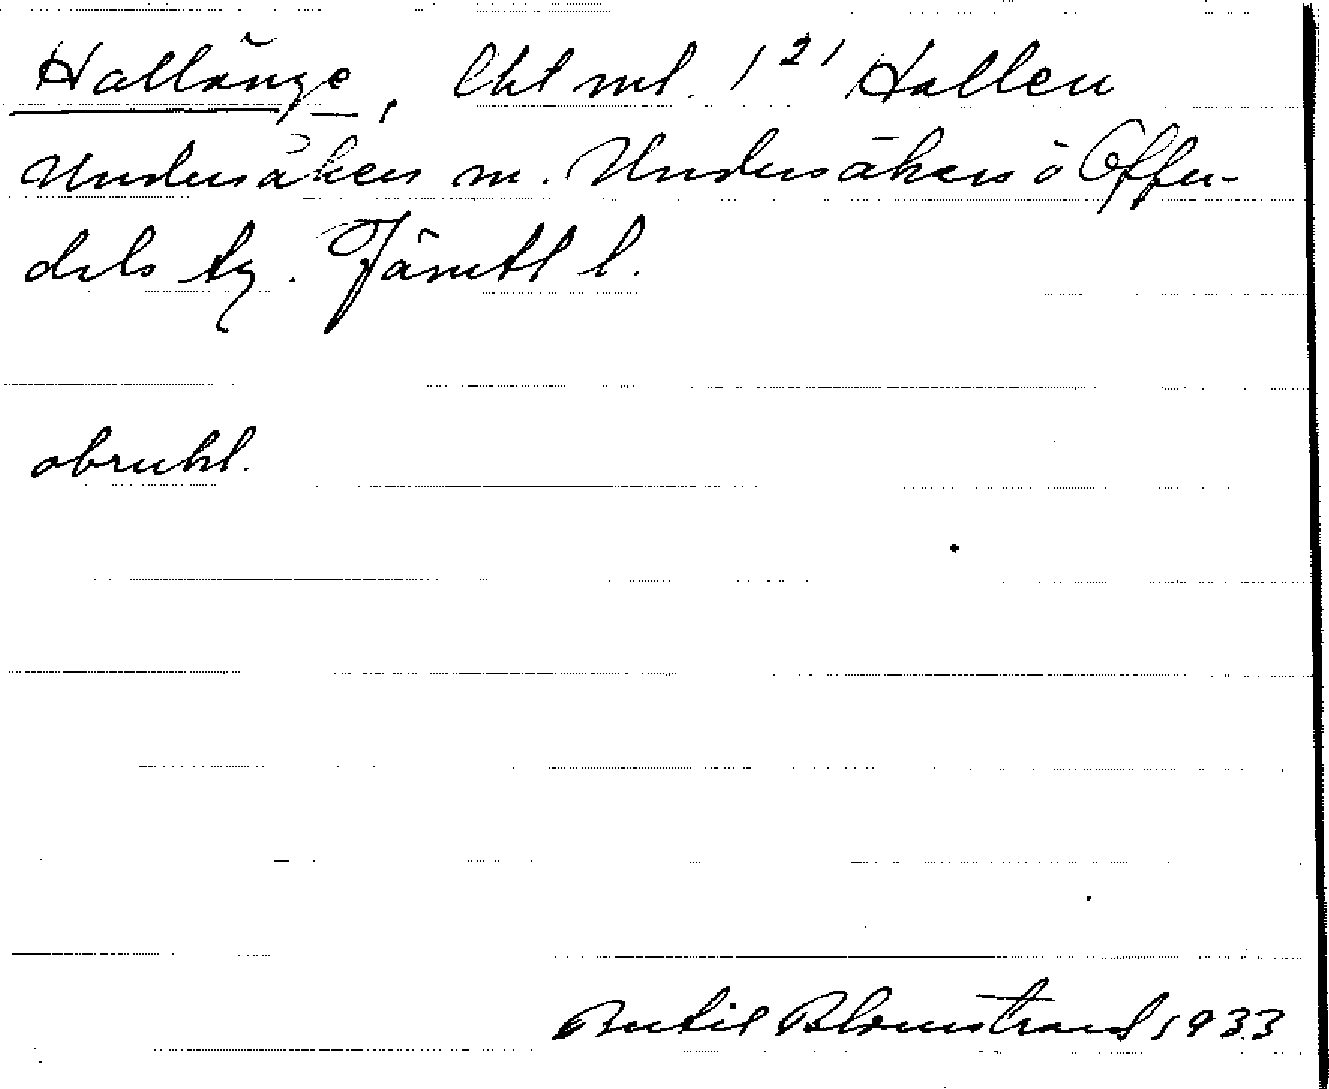 Hallänge, Ekl ml. 1²¹ Hallen
Undersåkers m. Undersåkers o Offer-
dals tg. Jämtl l.
obrukl.
Bertil Blomstrand 1933